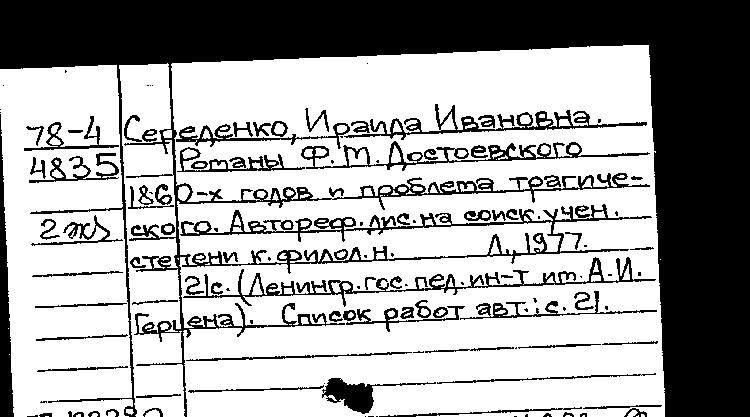 78-4 Середенко, Ираида Ивановна.
4835 Романы Ф.М.Достоевского
1860-х годов и проблема трагиче-
2 экз ского. Автореф.дис.на соиск.учен.
степени к.филол.н. Л.,1977.
21с.(Ленингр.гос.пед.ин-т им.А.И.
Герцена). Список работ авт.:с.21.